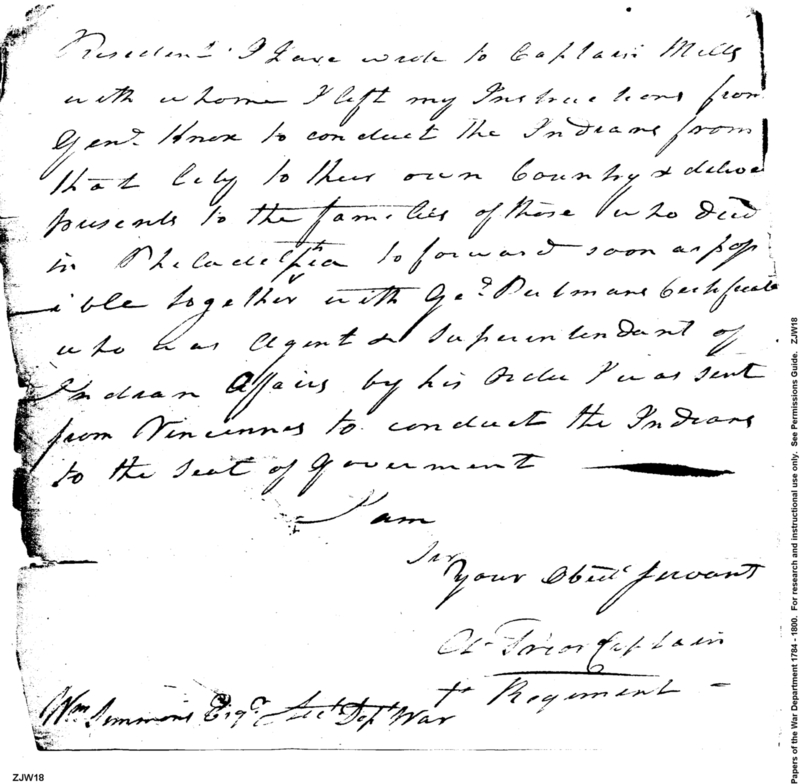 President I have wrote to Captain Mills
with whome I left my Instructions from
Genl. Knox to conduct the Indians from
that City to their own Country & deliver
presents to the families of those who died
in Philadelphia to forward soon as poss
ible together with Ge? Putmans Certificate
who was Agent & Superintendant of
Indian Affairs by his order I was sent
from Vincennes to conduct the Indians
to the Seat of Goverment
I am
Sir
Your Obedt. Servant
Ab. Prior Captain
Regiment
Wm Simmons Esqr. Dept War
Papers of the War Department 1784 - 1800. For research and instructional use only. See Permissions Guide. ZJW18
ZJW18